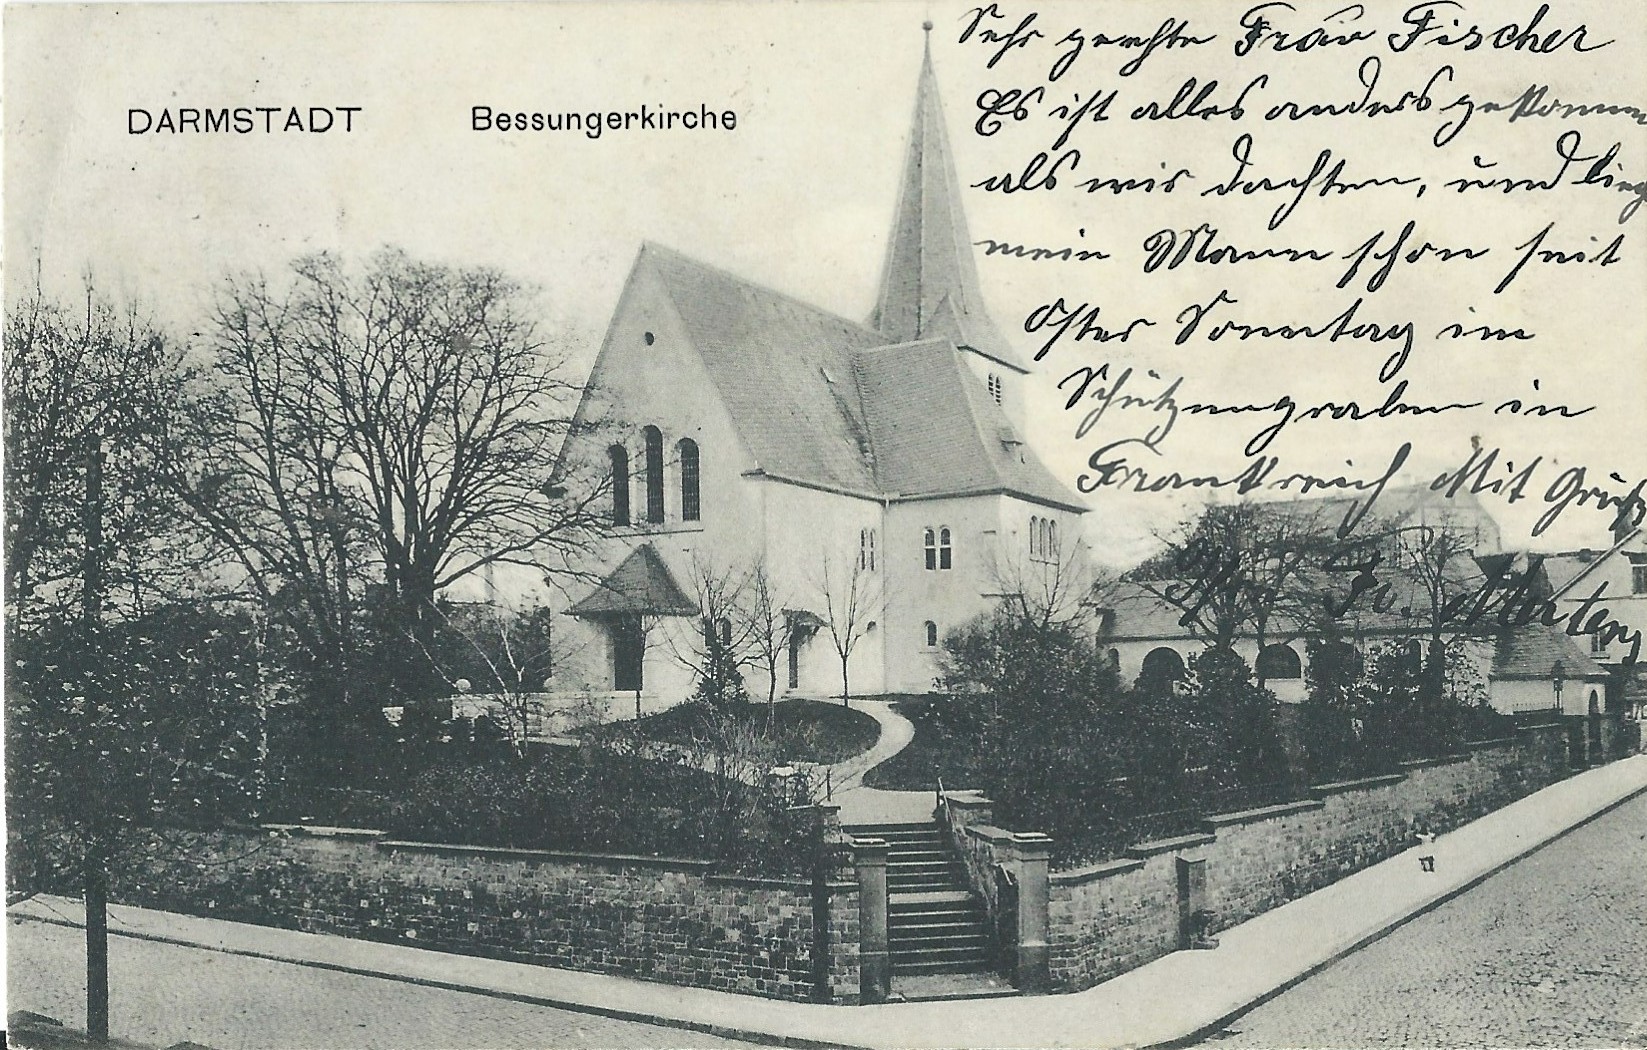 DARMSTADT Bessungerkirche
Sehr geehrte Frau Fischer
Es ist alles anders gekommen
als wir dachten, und liegt
mein Mann schon seit
Oster Sonntag im
Schützengraben in
Frankreich Mit Gruß
Fr. Mertens